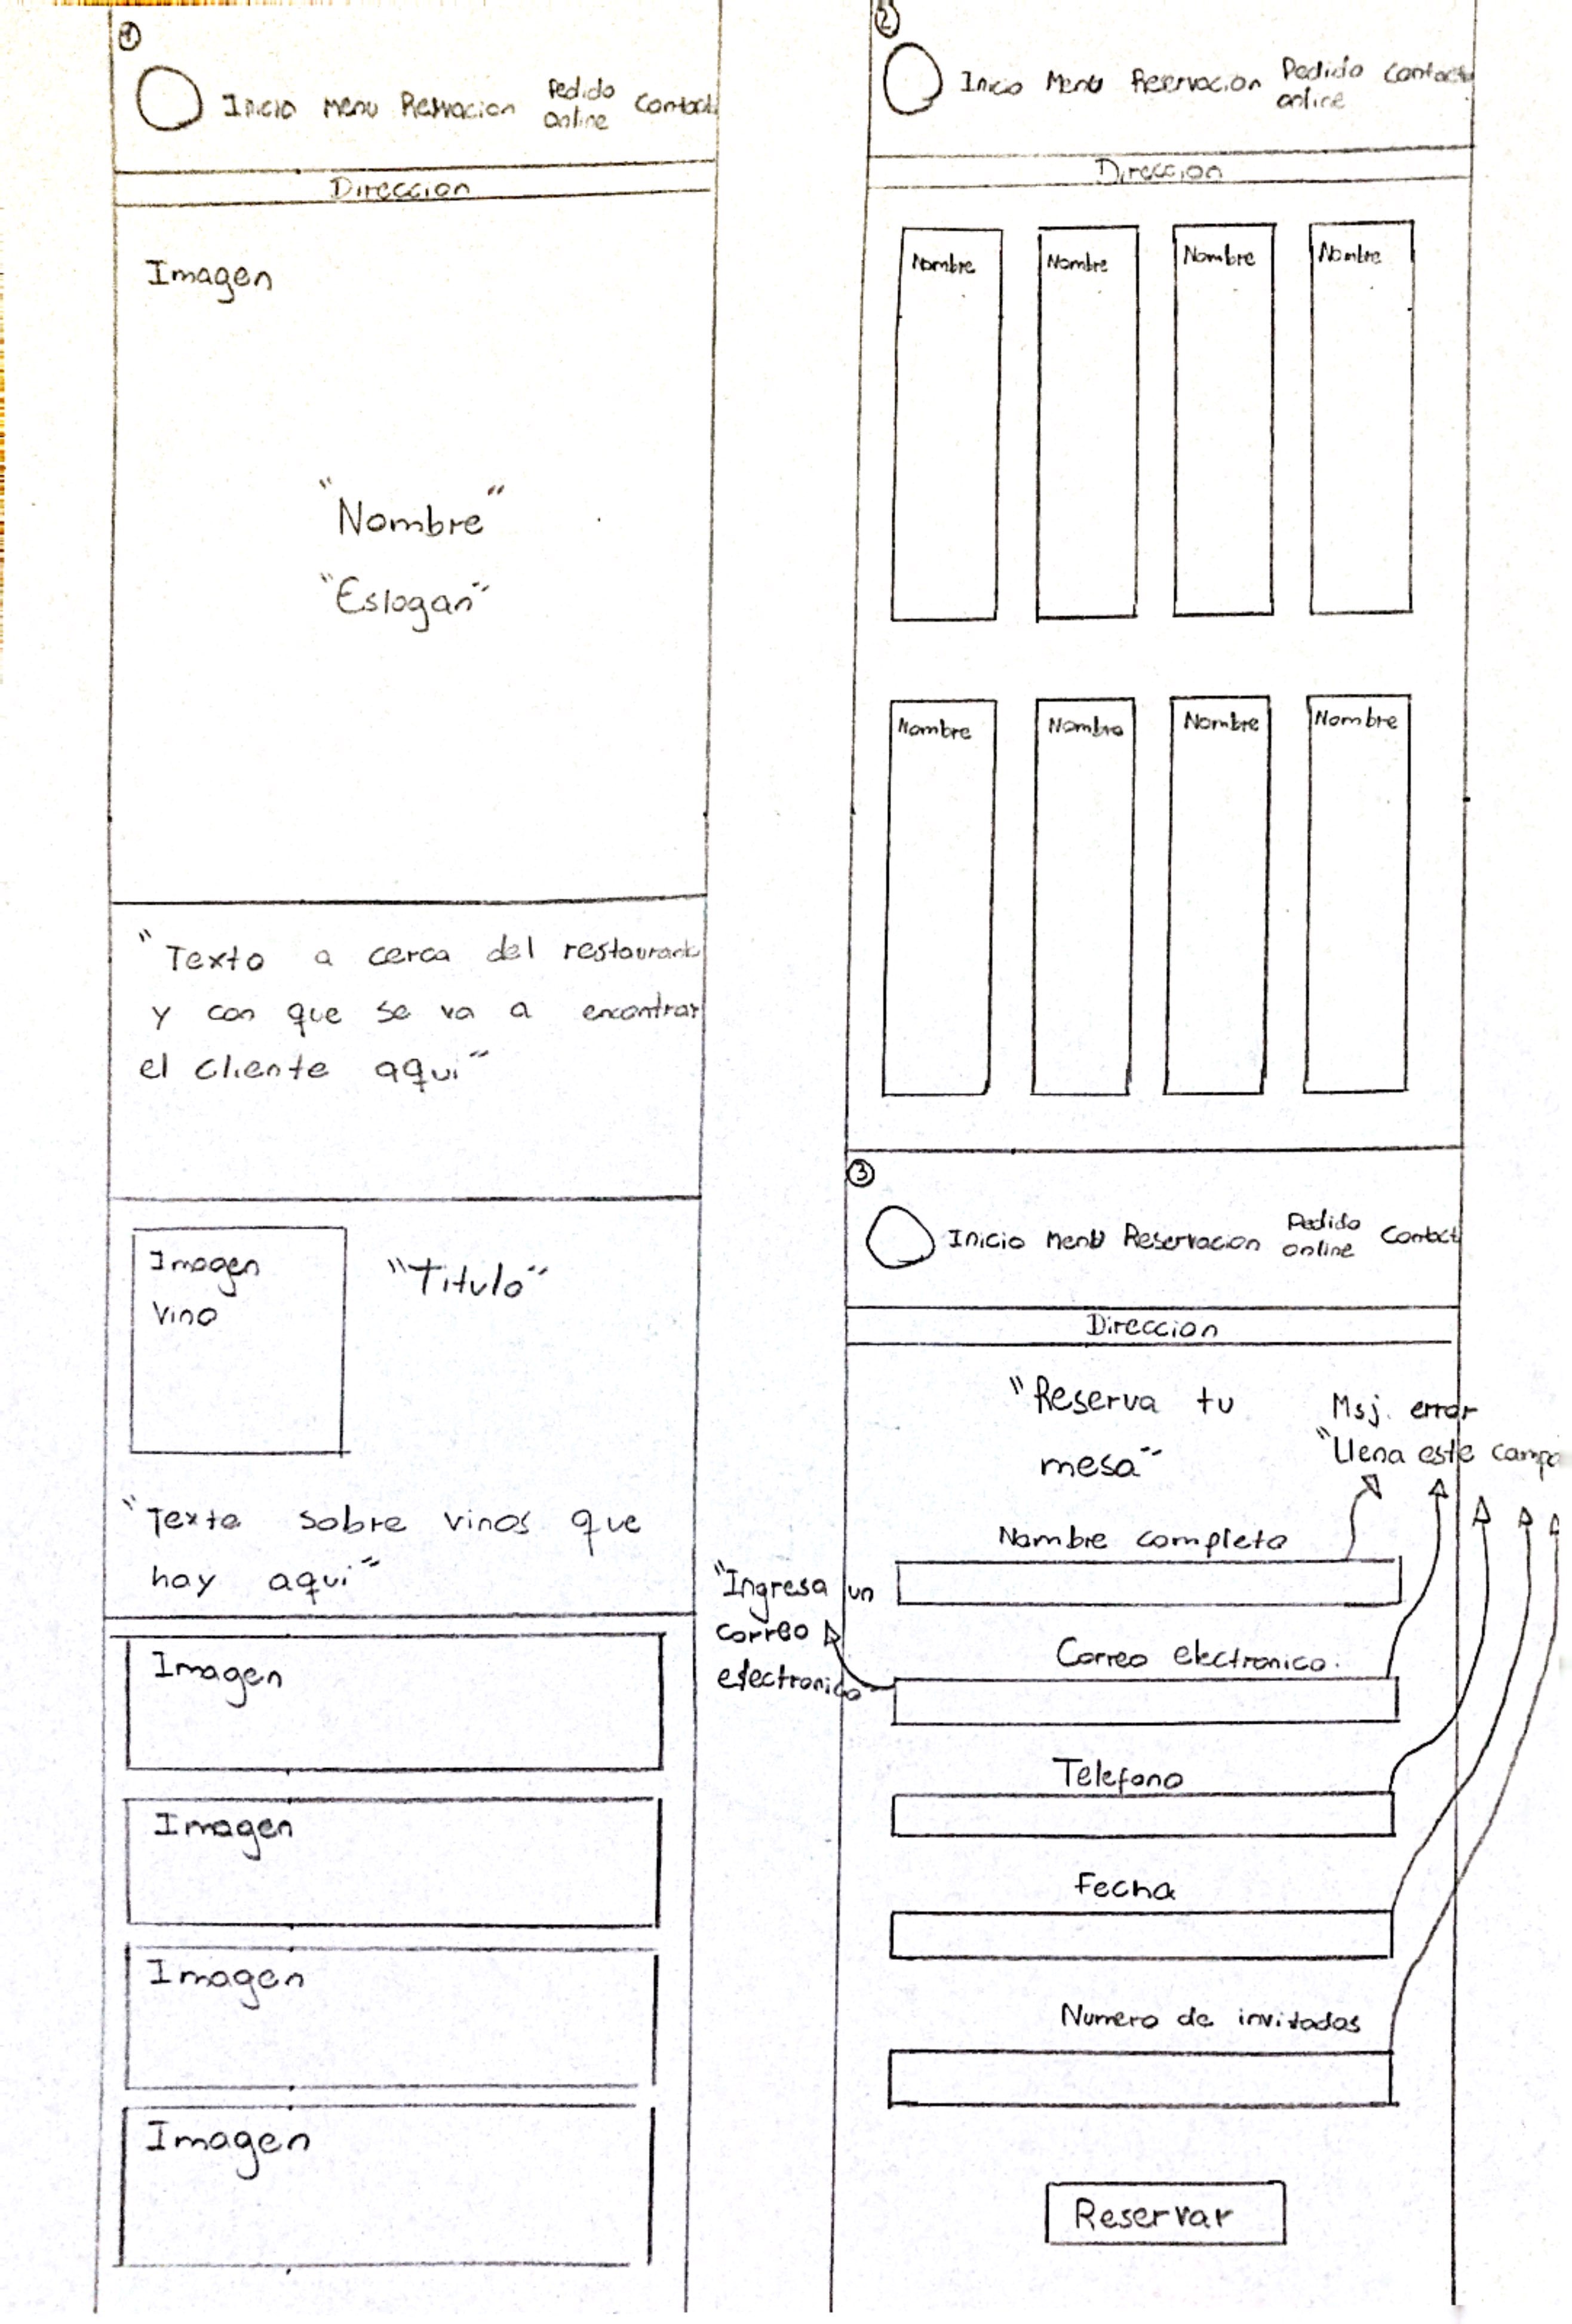 1
Inicio Menu Reservacion Pedido online Contact
Direccion
Imagen
"Nombre"
"Eslogan"
"Texto a cerca del restaurant
y con que se va a encontrar
el cliente aqui"
Imagen
Vino
"Titulo"
"Texto sobre vinos que
hay aqui"
Imagen
Imagen
Imagen
Imagen
2
Inicio Menú Reservacion Pedido online Contacto
Direccion
Nombre Nombre Nombre Nombre
Nombre Nombre Nombre Nombre
3
Inicio Menú Reservacion Pedido online Contact
Direccion
"Reserva tu
mesa"
Msj. error
"Llena este campo
Nombre completo
"Ingresa un
correo
electronico
Correo electronico.
Telefono
Fecha
Numero de invitados
Reservar